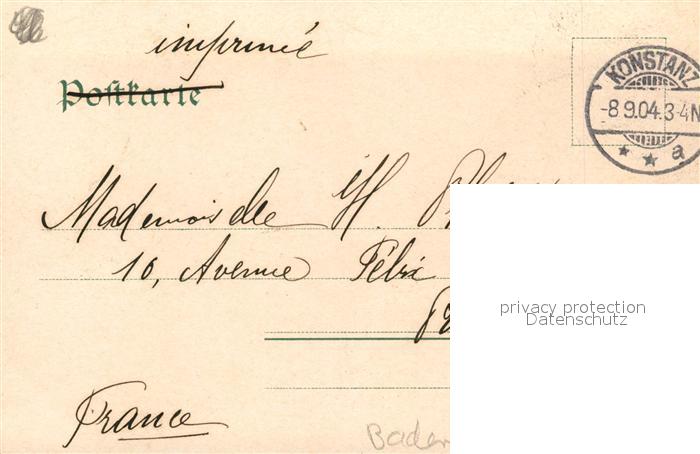 imprimé
Postkarte
KONSTANZ
-8 9.04.3-4N
a
Mademoiselle H.
10, Avenue Félix
France
Baden
privacy protection
Datenschutz